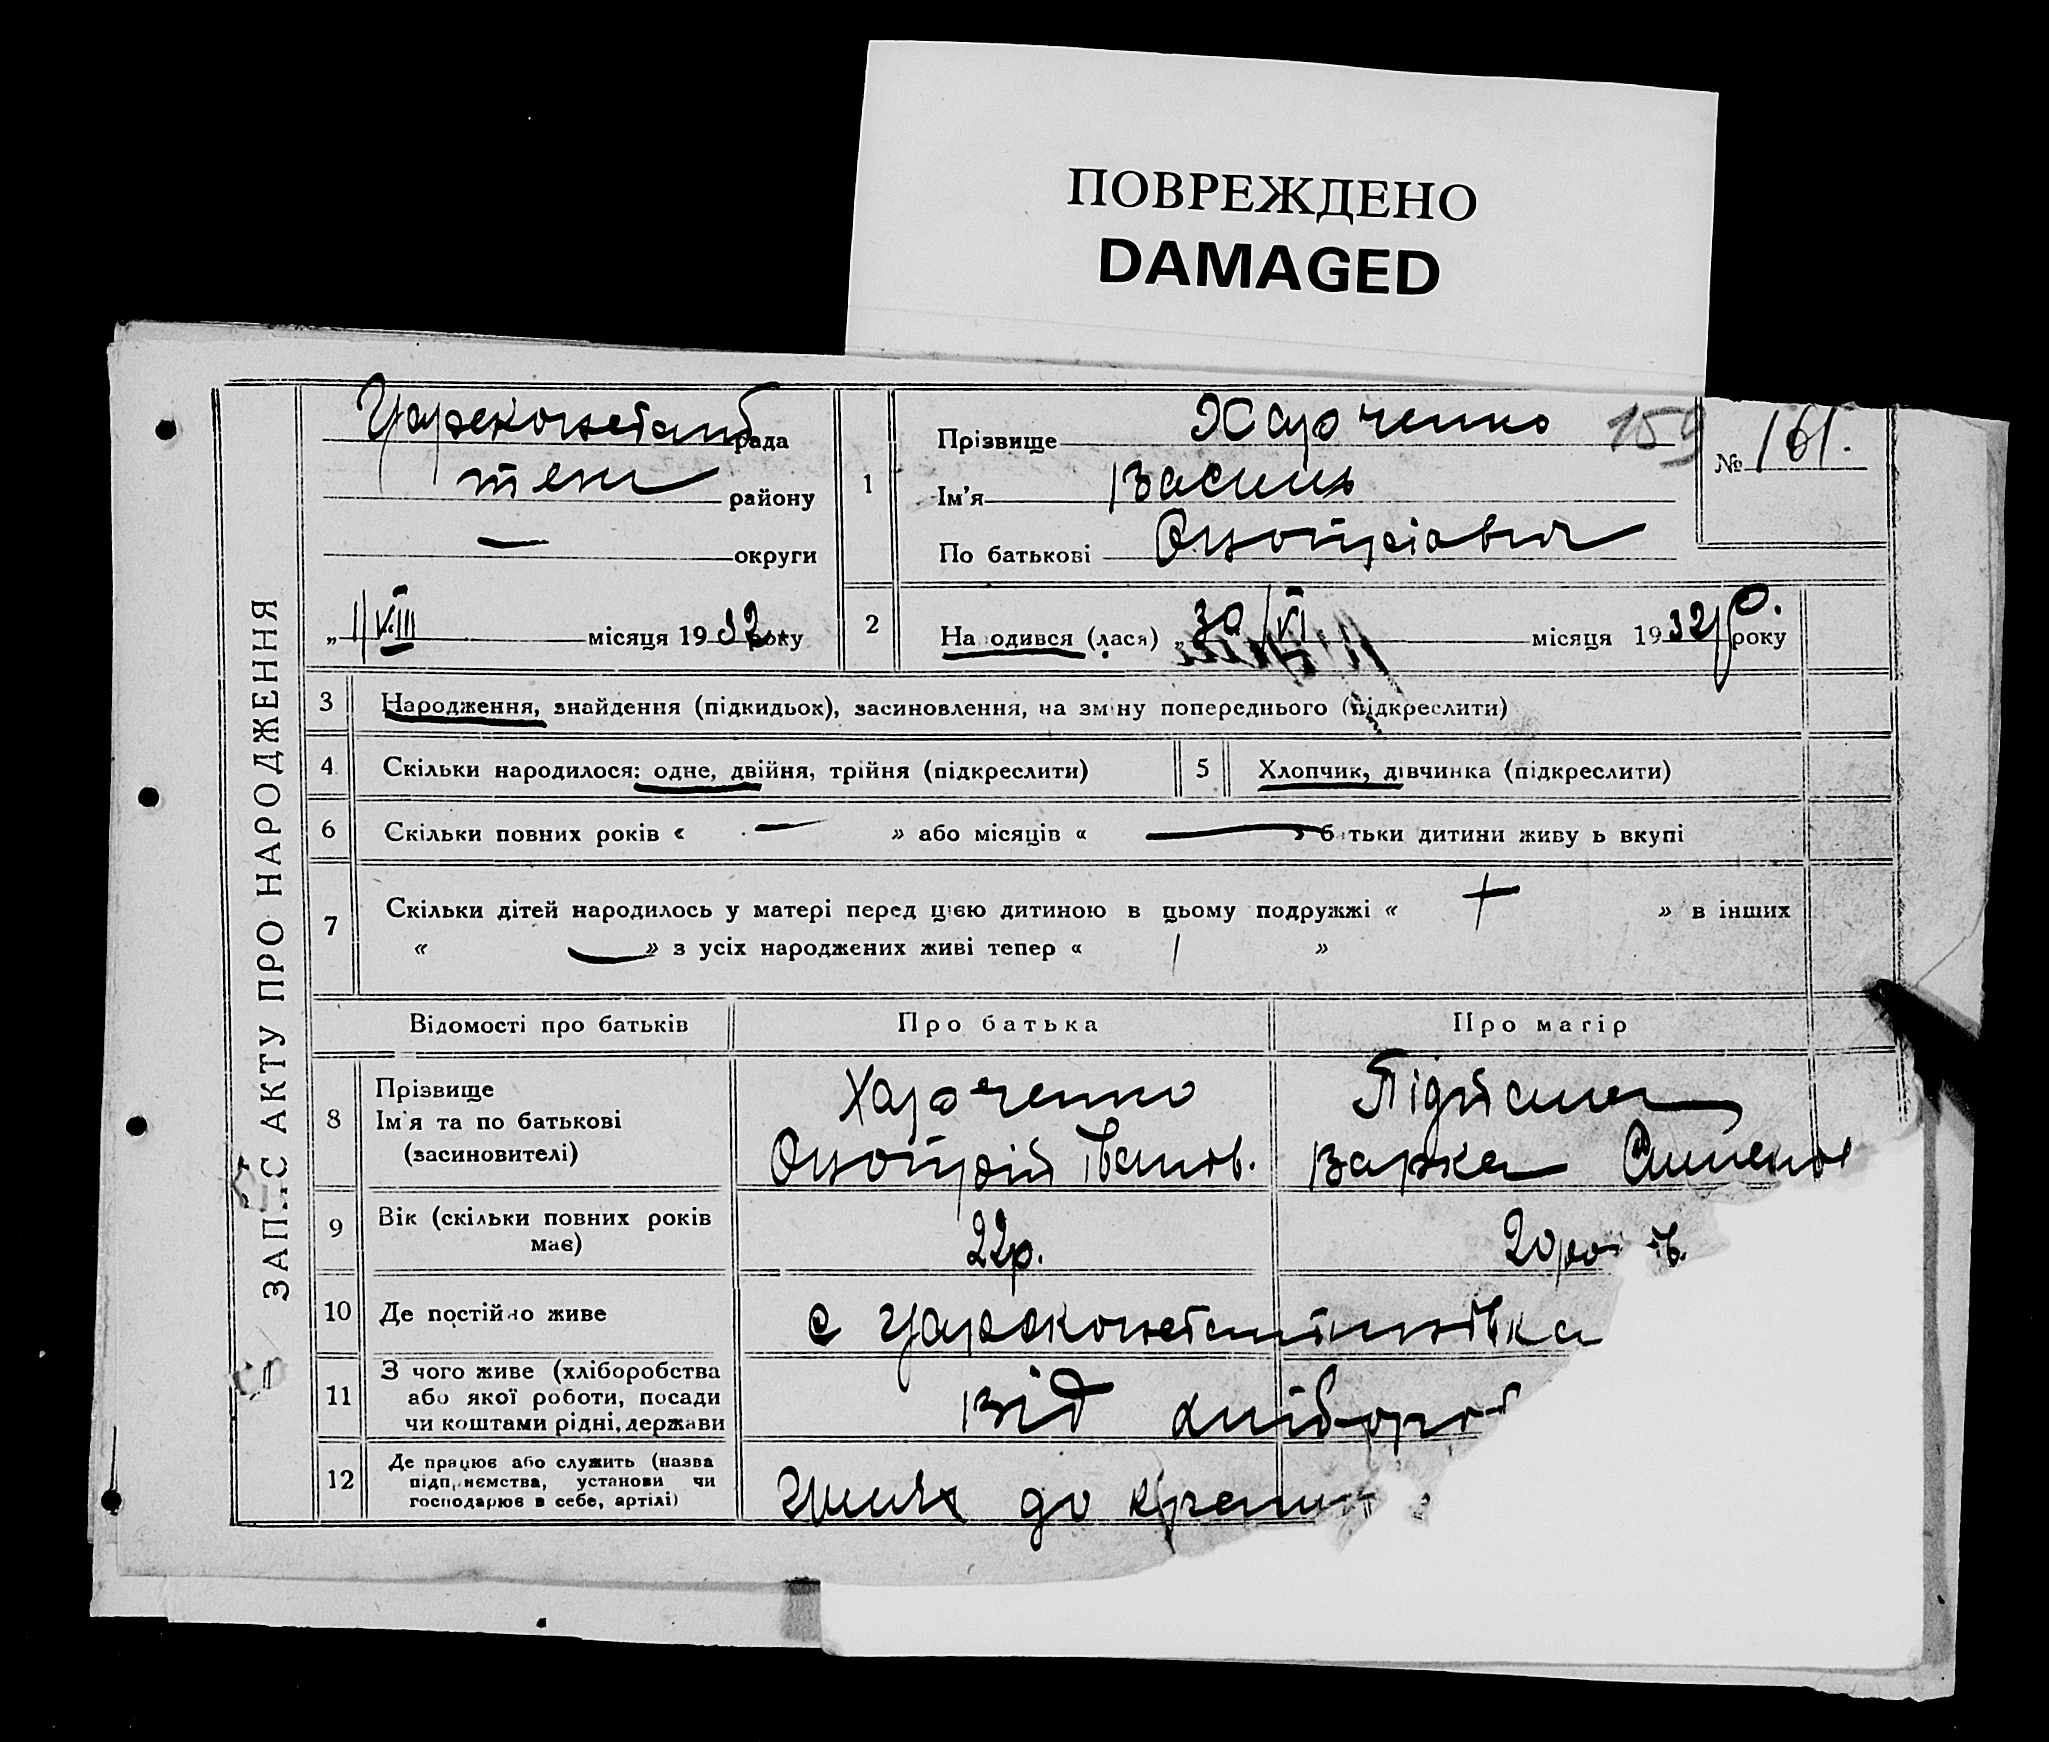 ПОВРЕЖДЕНО
DAMAGED
ЗАПИС АКТУ ПРО НАРОДЖЕННЯ
Царекопстант рада
району
— округи
„ 11/VIII місяця 1932 року
1
Прізвище Харченко 159
Ім'я Василь
По батькові
№ 161.
2
На одився (лася) „ 30/VI місяця 1932 р. року
3 Народження, знайдення (підкидьок), засиновлення, на зміну попереднього (підкреслити)
4 Скільки народилося: одне, двійня, трійня (підкреслити)
5 Хлопчик, дівчинка (підкреслити)
6 Скільки повних років « — » або місяців « — » б тьки дитини живу ь вкупі
7 Скільки дітей народилось у матері перед цією дитиною в цьому подружжі « + » в інших
« — » з усіх народжених живі тепер « / »
Відомості про батьків Про батька Про матір
8 Прізвище
Ім'я та по батькові
(засиновителі)
Харченко
Іванов.
Варка
9 Вік (скільки повних років
має)
22р. 20
10 Де постійно живе
с
11 З чого живе (хліборобства
або якої роботи, посади
чи коштами рідні, держави
від хлібороб
12 Де працює або служить (назва
підприємства, установи чи
господарює в себе, артілі)
до